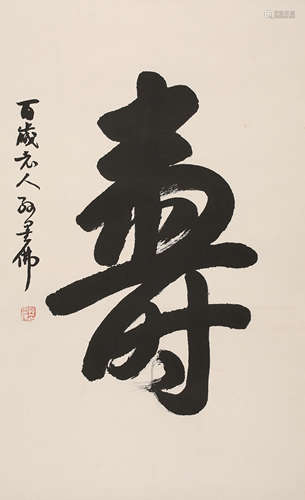 壽
百歲老人孙墨佛